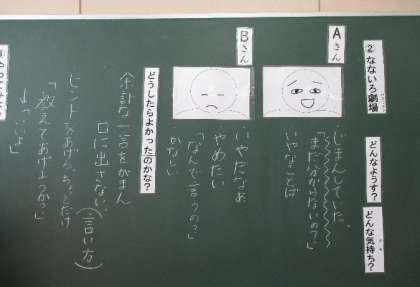 ② なないろ劇場
どんなようす?
どんな気持ち?
Aさん
じまんしていた。
「まだ分からないの?」
いやなことば
Bさん
いやだなあ
やめたい
「なんで言うの?」
かなしい
どうしたらよかったのかな?
余計な一言をがまん
口に出さない
(言い方)
ヒントをあげる ちょっとだけ
「教えてあげようか?」